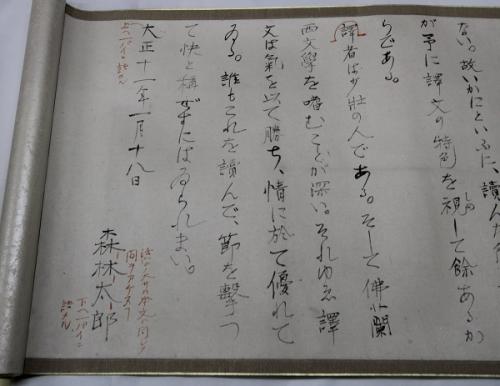 ない。故いかにといふに、讀んだ
が予に譯文の特色を視しめして餘あるか
らである。
譯者は少壯の人である。そして佛蘭
西文學を嗜むことが深い。それゆゑ譯
文は氣を以て勝ち、情に於て優れて
ゐる。誰もこれを讀んで、節を擊つ
て快と稱せずにはゐられまい。
大正十一年一月十八日
森林太郎